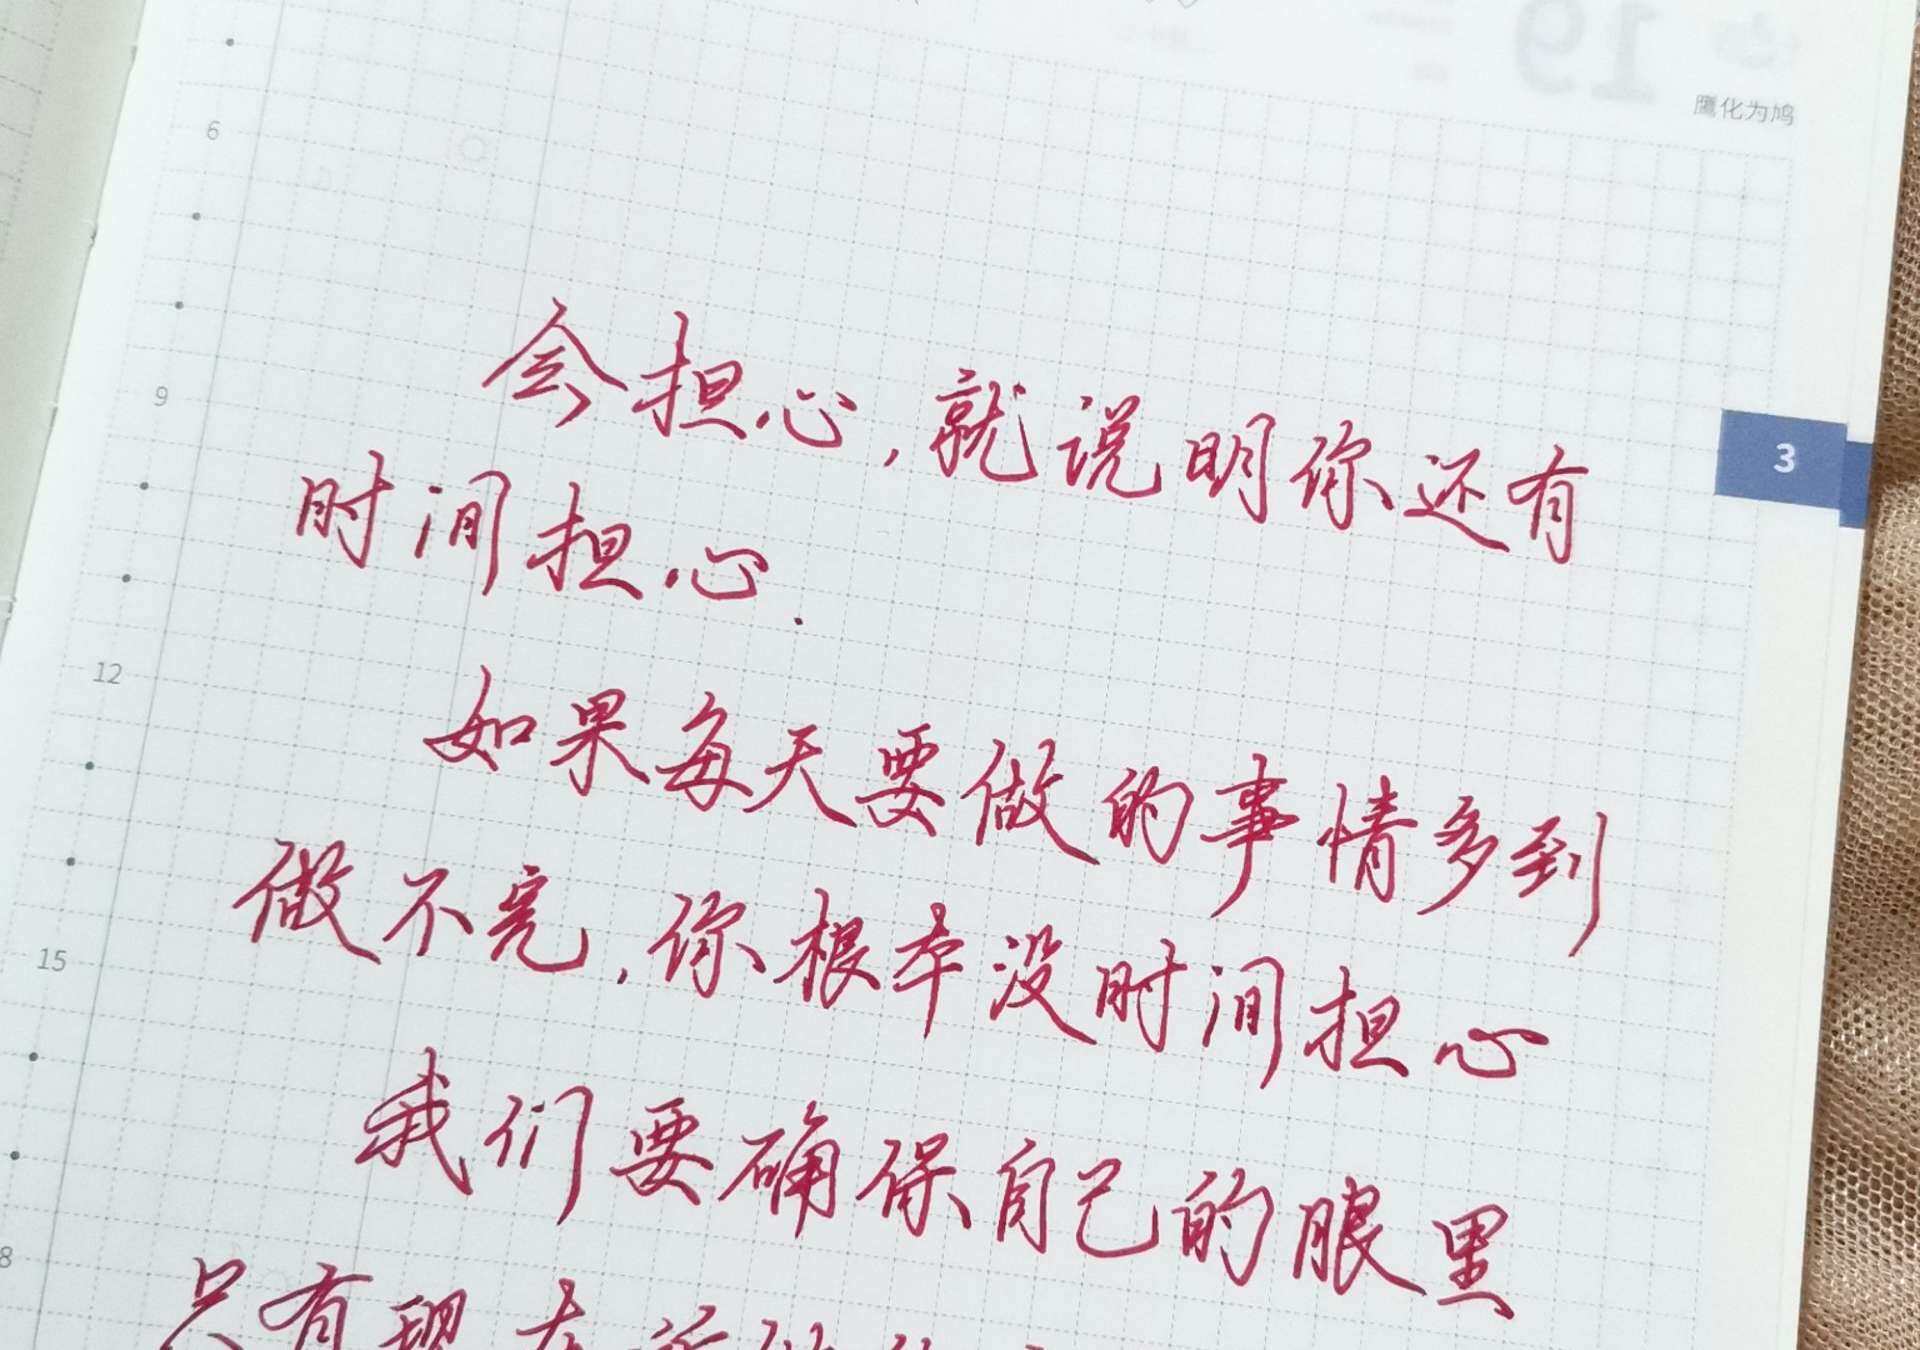 19
鷹化为鸠
6
会担心,就说明你还有
9
3
时间担心.
12
如果每天要做的事情多到
做不完,你根本没时间担心
15
我们要确保自己的眼里
8
只有现在所做的